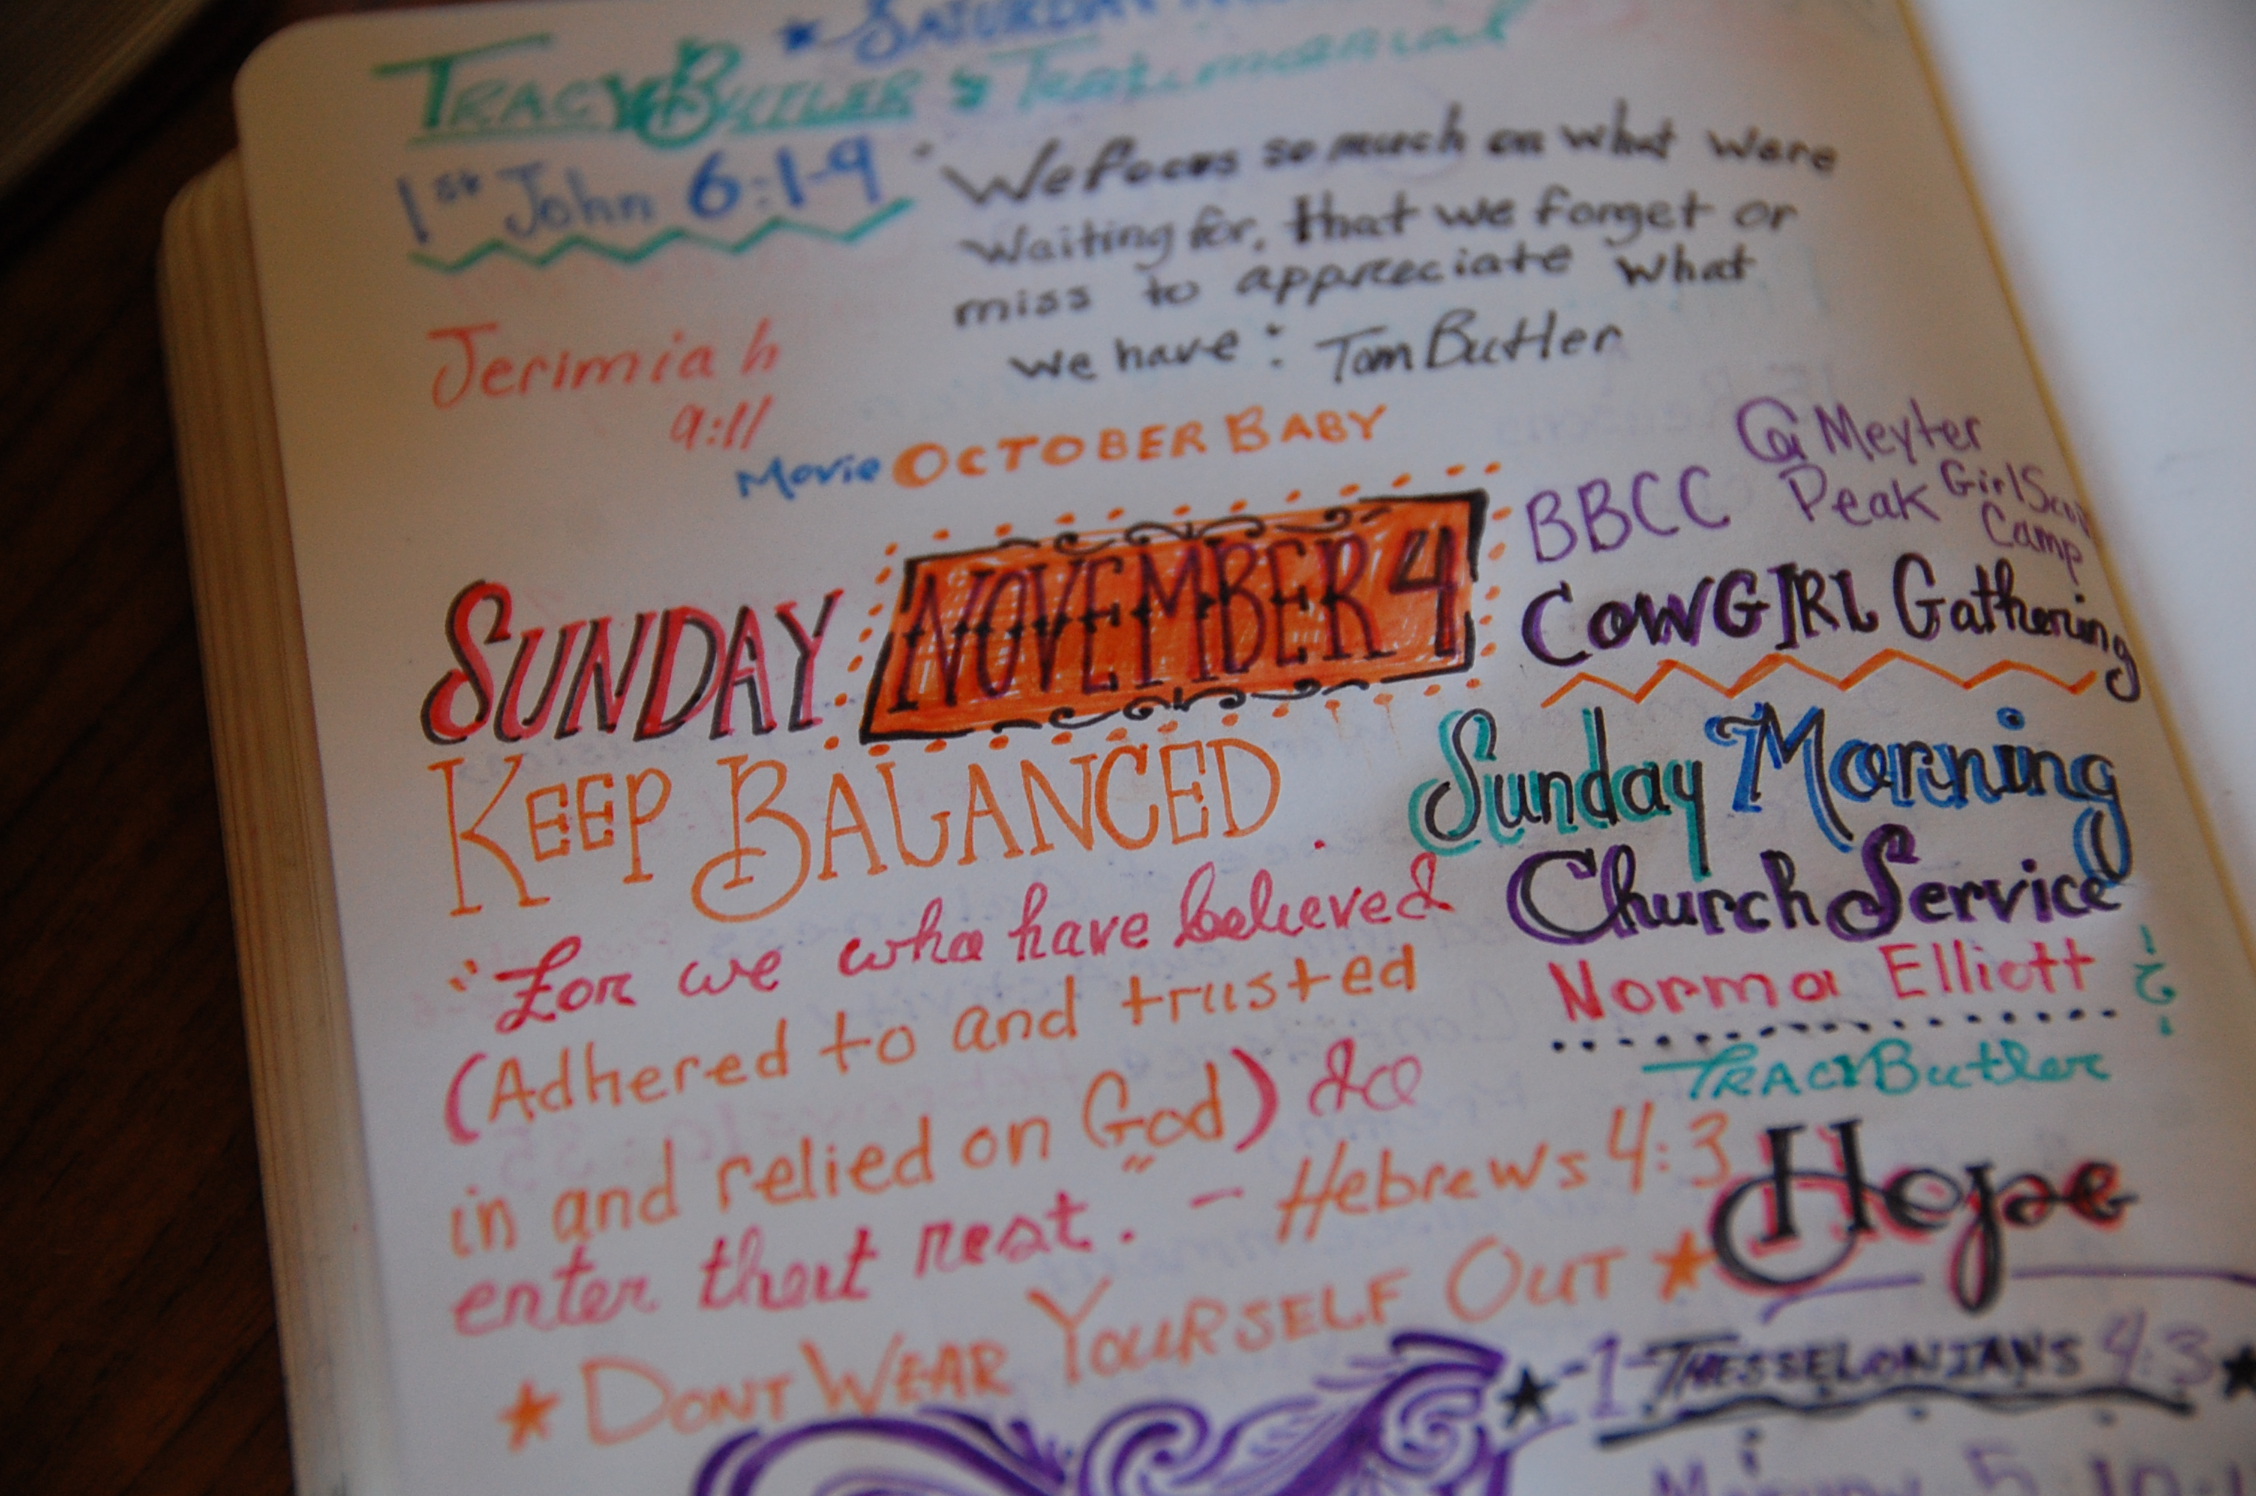 ★ SATURDAY
TRACY BUTLER's Testimonial
1st John 6:1-9
"We focus so much on what were
waiting for, that we forget or
miss to appreciate what
we have": Tom Butler
Jerimiah
9:11
Movie OCTOBER BABY
SUNDAY NOVEMBER 4
BBCC @ Meyter
Peak Girl Scout
Camp
COWGIRL Gathering
KEEP BALANCED
Sunday Morning
Church Service
Norma Elliott
TRACY Butler
Hope
"For we who have believed
(Adhered to and trusted
in and relied on God) do
enter that rest." - Hebrews 4:3
★ DONT WEAR YOURSELF OUT ★
★ -1- THESSELONIANS 4:3 ★